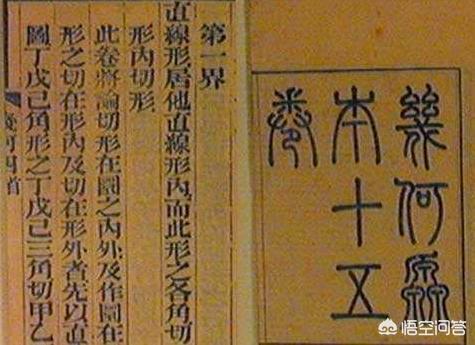 幾何原
本十五
卷
第一界
直線形居他直線形內而此形之各角切
形內切形
此卷將論切形在圜之內外及作圜在
形之切在形內及切在形外者先以直
圖丁戊己角形之丁戊己三角切甲乙
幾何四首
悟空问答